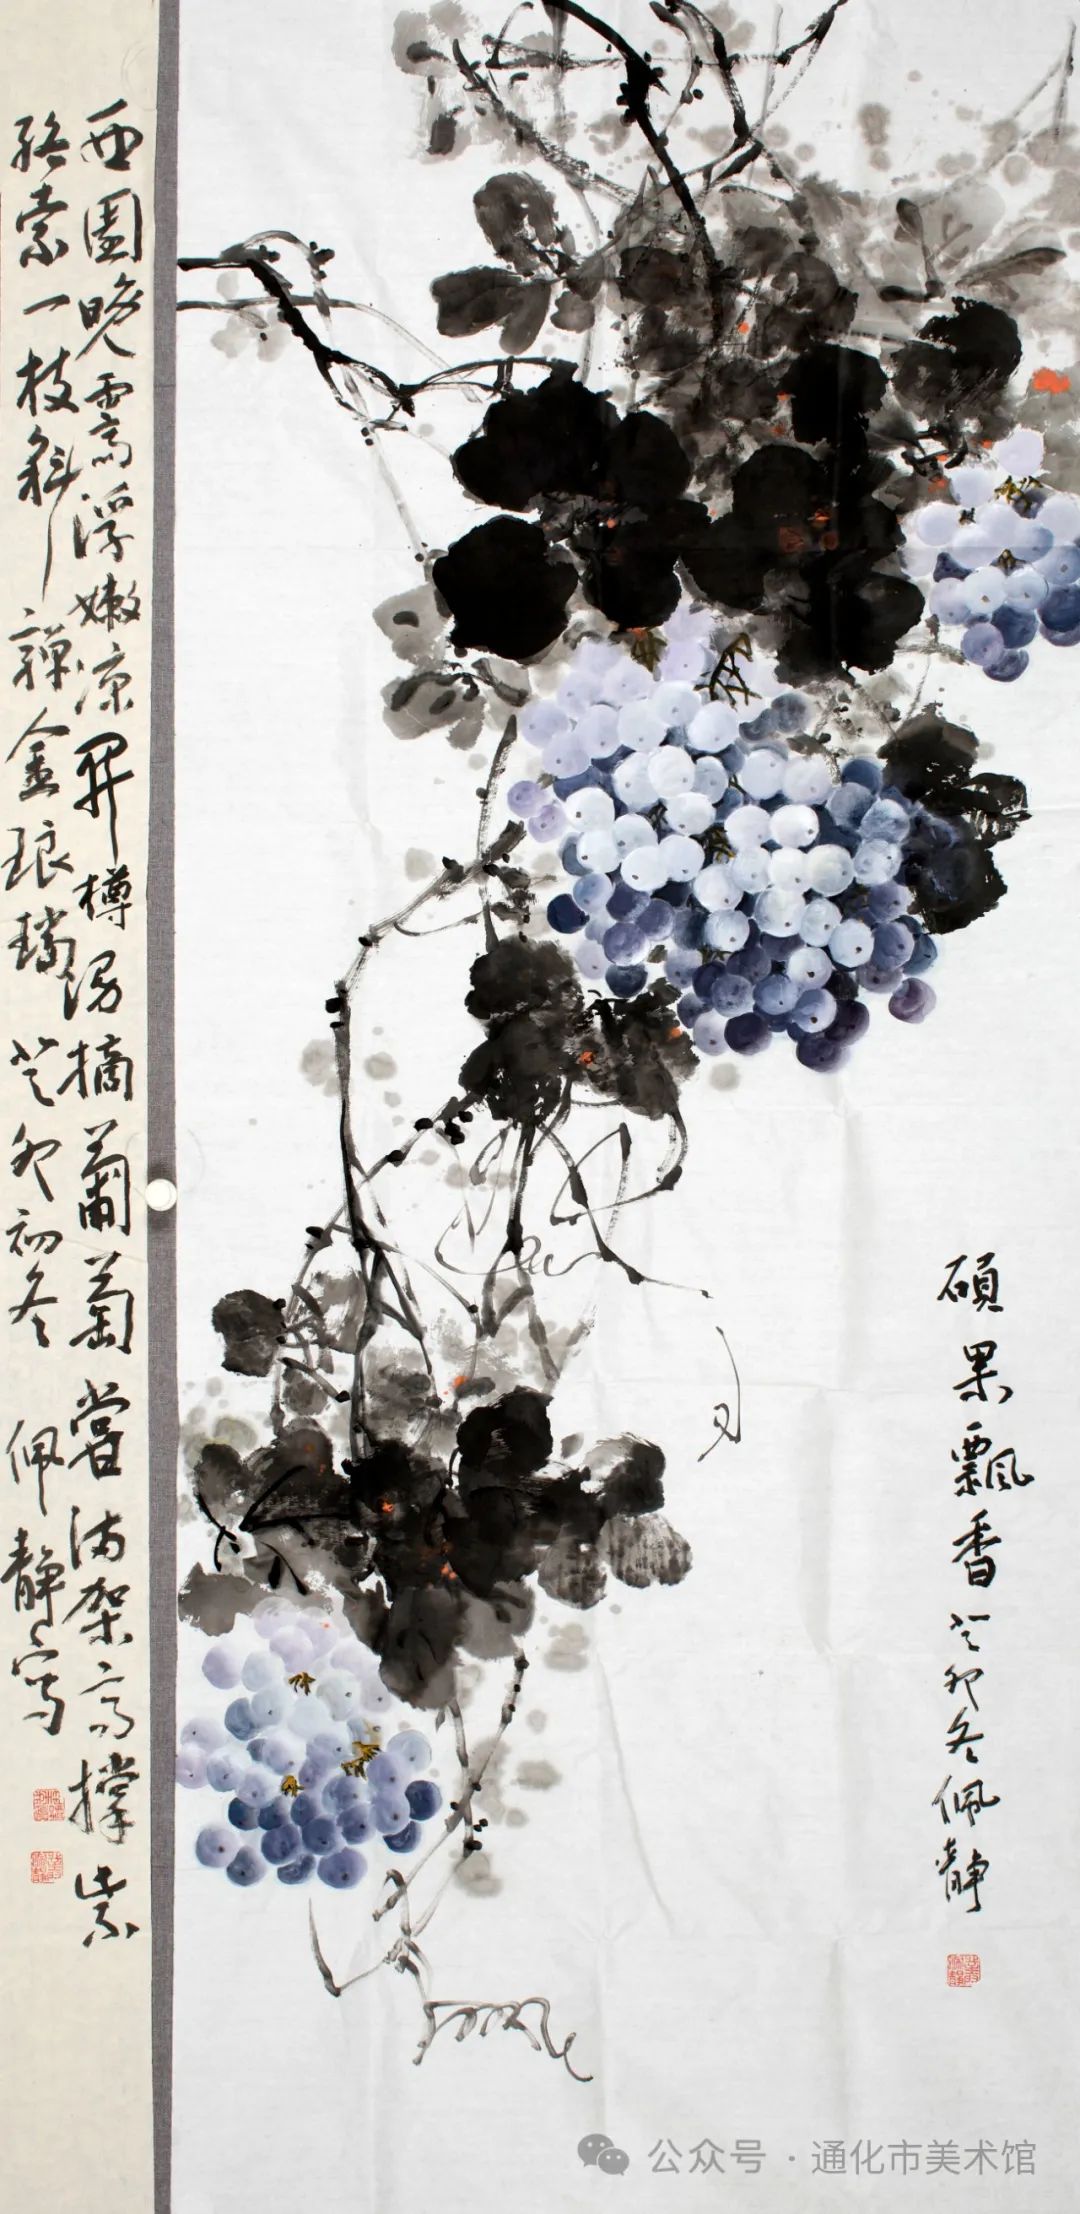 碩果飄香 癸卯冬 佩静
西園晚霽浮嫩凉開樽漫摘葡萄嘗满架高撑紫
络索一枝斜軃金琅璫 癸卯初冬 佩静写
公众号·通化市美术馆